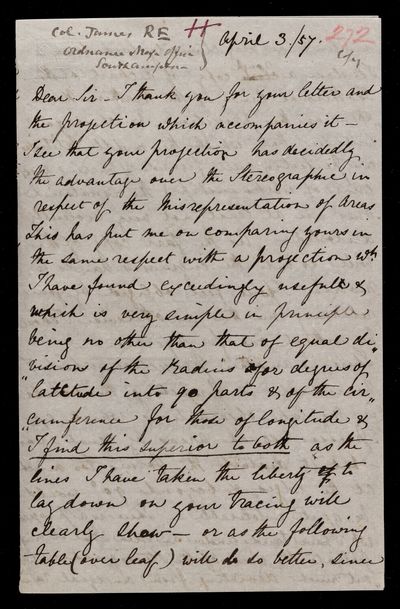 Col. James RE
Ordnance Map Office
Southampton
April 3./57.
272
Dear Sir - I thank you for your letter and
the projection which accompanies it -
I see that your projection has decidedly
the advantage over the Stereographic in
respect of the Misrepresentation of Areas
This has put me on comparing yours in
the same respect with a projection wh
I have found exceedingly usefull &
which is very simple in principle
being no other than that of equal di
visions of the radius for degrees of
latitude into 90 parts & of the cir
cumference for those of longitude &
I find this superior to both as the
lines I have taken the liberty to
lay down on your tracing will
clearly shew - or as the following
table (over leaf) will do so better, since